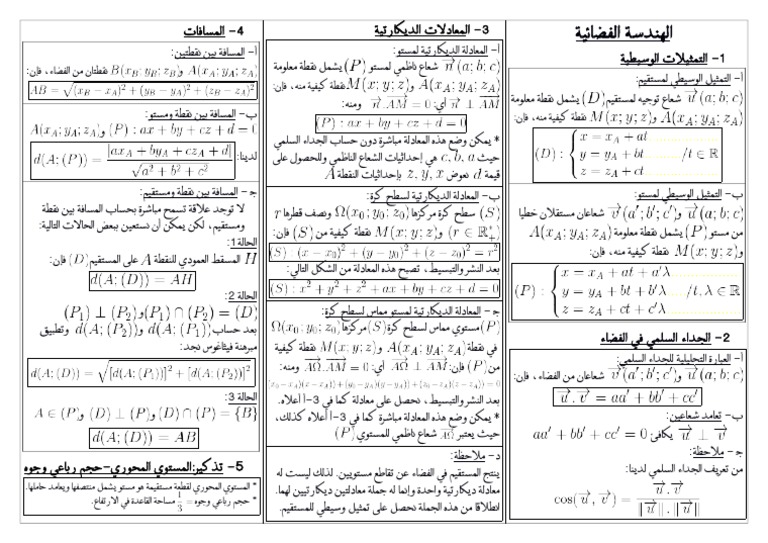 الهندسة الفضائية
1- التمثيلات الوسيطية
أ- التمثيل الوسيطي لمستقيم:
$\vec{u}(a;b;c)$ شعاع توجيه لمستقيم $(D)$ يشمل نقطة معلومة
$A(x_A;y_A;z_A)$ و $M(x;y;z)$ نقطة كيفية منه، فإن:
$(D):\begin{cases}x=x_A+at\\y=y_A+bt\\z=z_A+ct\end{cases}$ $/t\in\mathbb{R}$
ب- التمثيل الوسيطي لمستو:
$\vec{u}(a;b;c)$ و $\vec{v}(a';b';c')$ شعاعان مستقلان خطيا
من مستو $(P)$ يشمل نقطة معلومة $A(x_A;y_A;z_A)$
و $M(x;y;z)$ نقطة كيفية منه، فإن:
$(P):\begin{cases}x=x_A+at+a'\lambda\\y=y_A+bt+b'\lambda\\z=z_A+ct+c'\lambda\end{cases}$ $/t,\lambda\in\mathbb{R}$
2- الجداء السلمي في الفضاء
أ- العبارة التحليلية للجداء السلمي:
$\vec{u}(a;b;c)$ و $\vec{v}(a';b';c')$ شعاعان من الفضاء، فإن:
$\vec{u}.\vec{v}=aa'+bb'+cc'$
ب- تعامد شعاعين:
$\vec{u}\perp\vec{v}$ يكافئ: $aa'+bb'+cc'=0$
ج- ملاحظة:
من تعريف الجداء السلمي لدينا:
$\cos(\vec{u},\vec{v})=\frac{\vec{u}.\vec{v}}{||\vec{u}||.||\vec{u}||}$
3- المعادلات الديكارتية
أ- المعادلة الديكارتية لمستو:
$\vec{n}(a;b;c)$ شعاع ناظمي لمستو $(P)$ يشمل نقطة معلومة
$A(x_A;y_A;z_A)$ و $M(x;y;z)$ نقطة كيفية منه، فإن:
$\vec{n}\perp\overrightarrow{AM}$ أي: $\vec{n}.\overrightarrow{AM}=0$ ومنه:
$(P):ax+by+cz+d=0$
* يمكن وضع هذه المعادلة مباشرة دون حساب الجداء السلمي
حيث $c,b,a$ هي إحداثيات الشعاع الناظمي وللحصول على
قيمة $d$ نعوض $z,y,x$ بإحداثيات النقطة $A$
ب- المعادلة الديكارتية لسطح كرة:
$(S)$ سطح كرة مركزها $\Omega(x_0;y_0;z_0)$ ونصف قطرها $r$
$(r\in\mathbb{R}_+^*)$ و $M(x;y;z)$ نقطة كيفية من $(S)$ فإن:
$(S):(x-x_0)^2+(y-y_0)^2+(z-z_0)^2=r^2$
بعد النشر والتبسيط، تصبح هذه المعادلة من الشكل التالي:
$(S):x^2+y^2+z^2+ax+by+cz+d=0$
ج- المعادلة الديكارتية لمستو مماس لسطح كرة:
$(P)$ مستوي مماس لسطح كرة $(S)$ مركزها $\Omega(x_0;y_0;z_0)$
في نقطة $A(x_A;y_A;z_A)$ و $M(x;y;z)$ نقطة كيفية
من $(P)$ فإن: $\overrightarrow{A\Omega}\perp\overrightarrow{AM}$ أي: $\overrightarrow{A\Omega}.\overrightarrow{AM}=0$ ومنه:
$(x_0-x_A)(x-x_A)+(y_0-y_A)(y-y_A)+(z_0-z_A)(z-z_A)=0$
بعد النشر والتبسيط، نحصل على معادلة كما في 3-أ أعلاه.
* يمكن وضع هذه المعادلة مباشرة كما في 3-أ أعلاه كذلك،
حيث يعتبر $\overrightarrow{A\Omega}$ شعاع ناظمي للمستوي $(P)$
د- ملاحظة:
ينتج المستقيم في الفضاء عن تقاطع مستويين. لذلك ليست له
معادلة ديكارتية واحدة وإنما له جملة معادلتين ديكارتيين لهما.
انطلاقا من هذه الجملة نحصل على تمثيل وسيطي للمستقيم.
4- المسافات
أ- المسافة بين نقطتين:
$A(x_A;y_A;z_A)$ و $B(x_B;y_B;z_B)$ نقطتان من الفضاء، فإن:
$AB=\sqrt{(x_B-x_A)^2+(y_B-y_A)^2+(z_B-z_A)^2}$
ب- المسافة بين نقطة ومستو:
$(P):ax+by+cz+d=0$ و $A(x_A;y_A;z_A)$
لدينا: $d(A;(P))=\frac{|ax_A+by_A+cz_A+d|}{\sqrt{a^2+b^2+c^2}}$
ج- المسافة بين نقطة ومستقيم:
لا توجد علاقة تسمح مباشرة بحساب المسافة بين نقطة
ومستقيم، لكن يمكن أن نستعين ببعض الحالات التالية:
الحالة 1:
$H$ المسقط العمودي للنقطة $A$ على المستقيم $(D)$ فإن:
$d(A;(D))=AH$
الحالة 2:
$(P_1)\perp(P_2)$ و $(P_1)\cap(P_2)=(D)$
بعد حساب $d(A;(P_1))$ و $d(A;(P_2))$ وتطبيق
مبرهنة فيثاغوس نجد:
$d(A;(D))=\sqrt{[d(A;(P_1))]^2+[d(A;(P_2))]^2}$
الحالة 3:
$A\in(P)$ و $(D)\perp(P)$ و $(D)\cap(P)=\{B\}$
$d(A;(D))=AB$
5- تذكير: المستوي المحوري-حجم رباعي وجوه
* المستوي المحوري لقطعة مستقيمة هو مستو يشمل منتصفها ويعامد حاملها.
* حجم رباعي وجوه = $\frac{1}{3}$ مساحة القاعدة في الارتفاع.